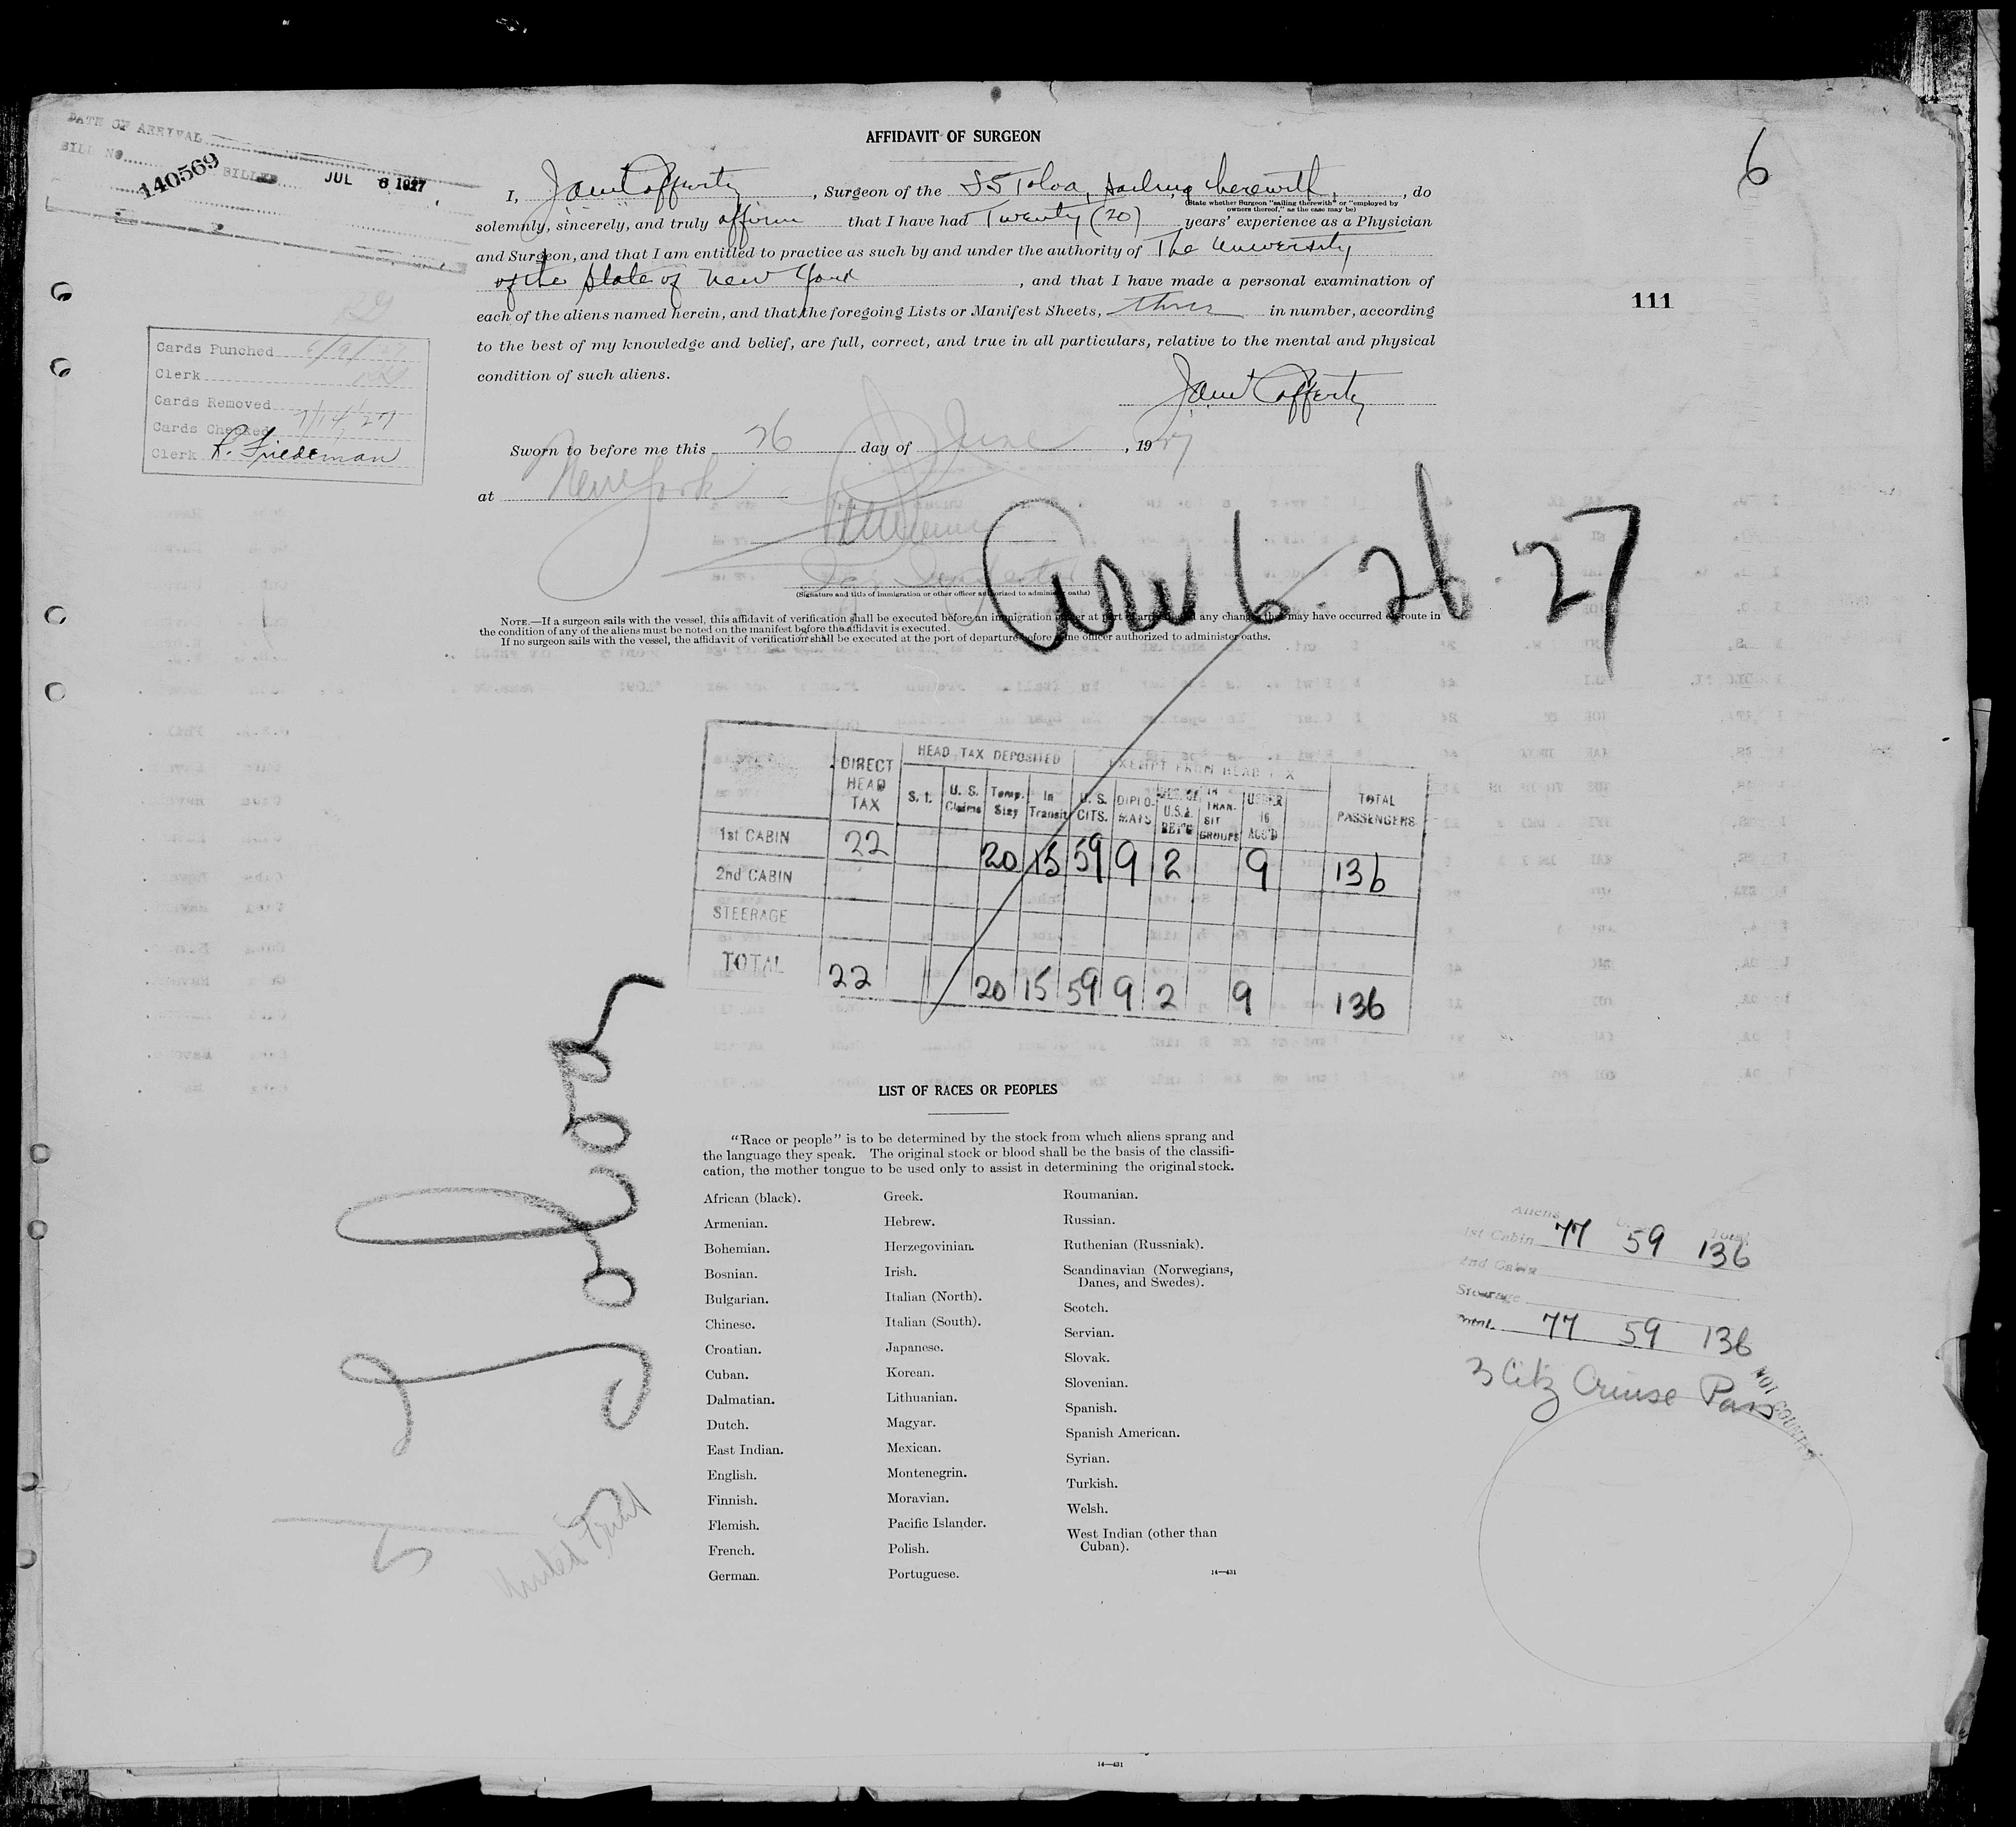 DATE OF ARRIVAL
BILL NO. 140569 BILLED JUL 6 1927
6
111
AFFIDAVIT OF SURGEON
I, Cafferty, Surgeon of the SS Toloa, sailing therewith, do
(State whether Surgeon "sailing therewith" or "employed by
owners thereof," as the case may be)
solemnly, sincerely, and truly affirm that I have had Twenty (20) years' experience as a Physician
and Surgeon, and that I am entitled to practice as such by and under the authority of The University
of the State of New York, and that I have made a personal examination of
each of the aliens named herein, and that the foregoing Lists or Manifest Sheets, three in number, according
to the best of my knowledge and belief, are full, correct, and true in all particulars, relative to the mental and physical
condition of such aliens.
Cafferty
Sworn to before me this 26 day of June, 1927
at New York
(Signature and title of immigration or other officer authorized to administer oaths)
Cards Punched
Clerk
Cards Removed
Cards Checked
Clerk R. Friedeman
Arr 6-26-27
NOTE.—If a surgeon sails with the vessel, this affidavit of verification shall be executed before an immigration officer at port of arrival, and any change that may have occurred en route in
the condition of any of the aliens must be noted on the manifest before the affidavit is executed.
If no surgeon sails with the vessel, the affidavit of verification shall be executed at the port of departure before some officer authorized to administer oaths.
DIRECT HEAD TAX HEAD TAX DEPOSITED EXEMPT FROM HEAD TAX TOTAL PASSENGERS
S. I. U. S. Claims Temp. Stay In Transit U. S. CITS. DIPLOMATS RES. OF U.S. RET'G IN TRANSIT GROUPS UNDER 16 ACC'D
1st CABIN 22 20 15 59 9 2 9 136
2nd CABIN
STEERAGE
TOTAL 22 20 15 59 9 2 9 136
Toloa
United Fruit
5
LIST OF RACES OR PEOPLES
"Race or people" is to be determined by the stock from which aliens sprang and
the language they speak. The original stock or blood shall be the basis of the classifi-
cation, the mother tongue to be used only to assist in determining the original stock.
African (black).
Armenian.
Bohemian.
Bosnian.
Bulgarian.
Chinese.
Croatian.
Cuban.
Dalmatian.
Dutch.
East Indian.
English.
Finnish.
Flemish.
French.
German.
Greek.
Hebrew.
Herzegovinian.
Irish.
Italian (North).
Italian (South).
Japanese.
Korean.
Lithuanian.
Magyar.
Mexican.
Montenegrin.
Moravian.
Pacific Islander.
Polish.
Portuguese.
Roumanian.
Russian.
Ruthenian (Russniak).
Scandinavian (Norwegians,
Danes, and Swedes).
Scotch.
Servian.
Slovak.
Slovenian.
Spanish.
Spanish American.
Syrian.
Turkish.
Welsh.
West Indian (other than
Cuban).
14—431
Aliens Total
1st Cabin 77 59 136
2nd Cabin
Steerage
Total 77 59 136
3 Citz Cruise Pass
NOT COUNTED
14—431